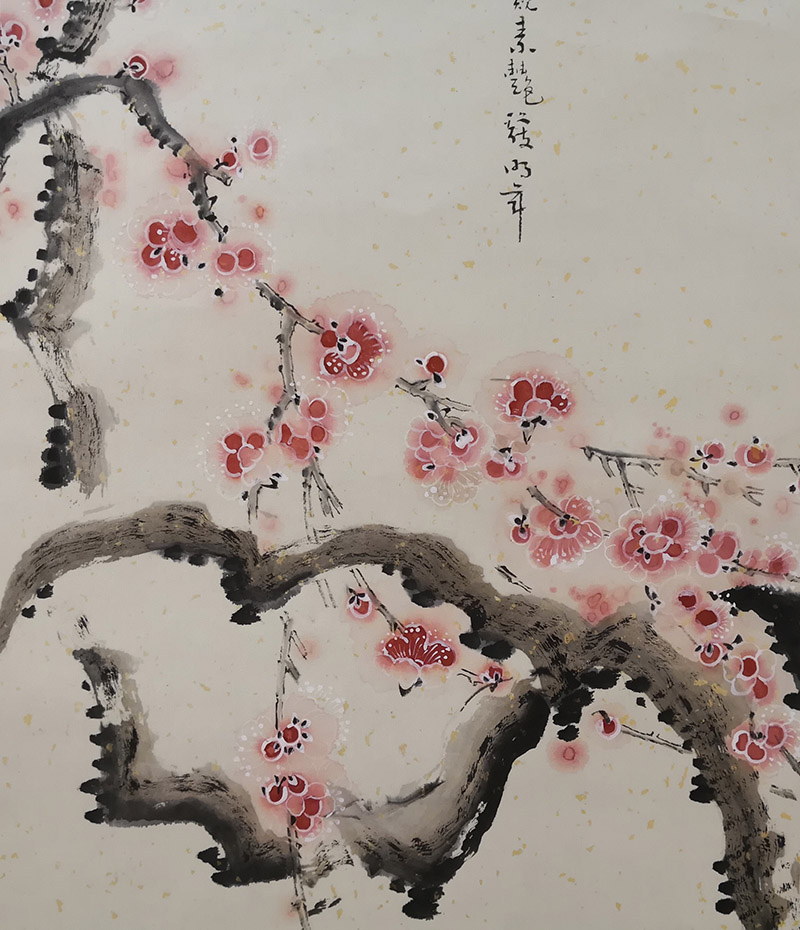 素艷發明年